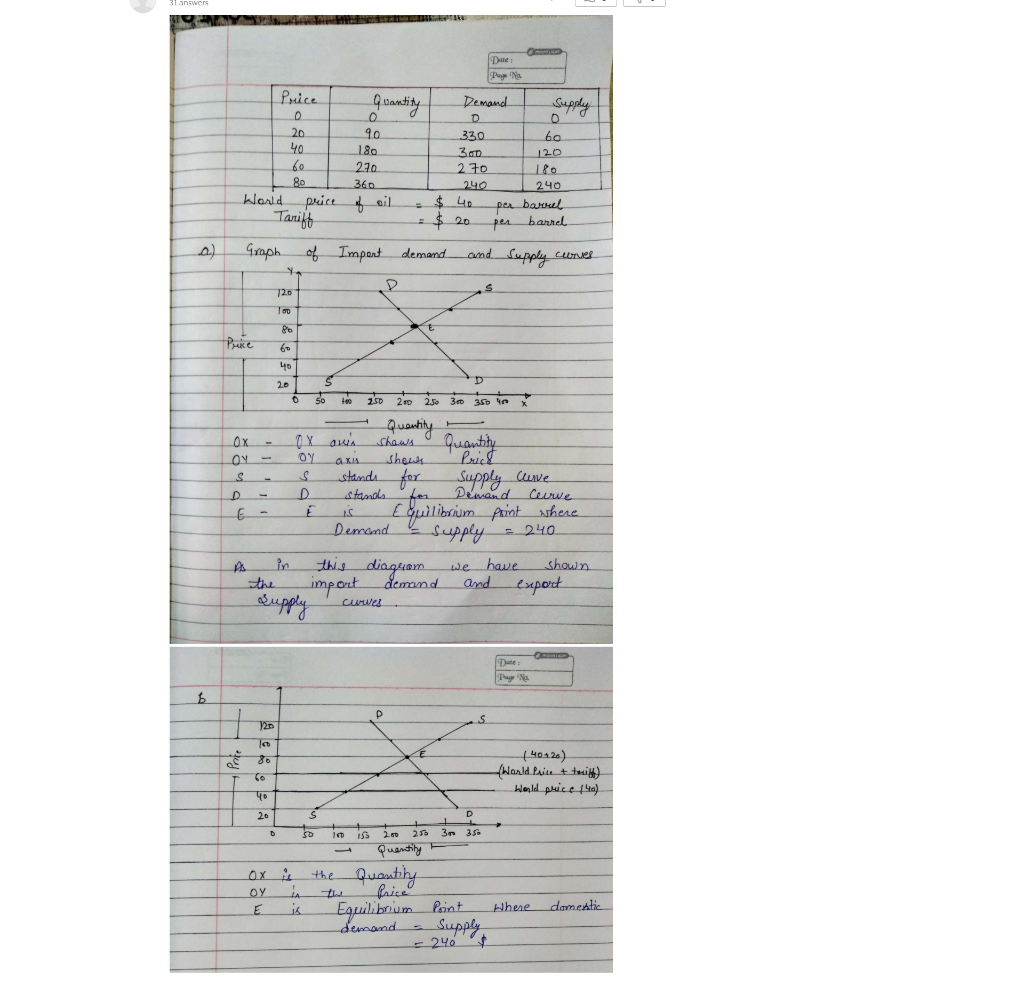 31 answers
Date :
Page No.
Price Quantity Demand Supply
0 0 0 0
20 90 330 60
40 180 300 120
60 270 270 180
80 360 240 240
World price of oil = $ 40 per barrel
Tariff = $ 20 per barrel
a) Graph of Import demand and Supply curves
Y
120
100
80
60
40
20
Price
D
S
E
S
D
0 50 100 250 200 250 300 350 400 X
Quantity
OX - OX axis shows Quantity
OY - OY axis shows Price
S - S stands for Supply Curve
D - D stands for Demand Curve
E - E is Equilibrium point where
Demand = Supply = 240
As in this diagram we have shown
the import demand and export
Supply curves .
Date :
Page No.
b
120
100
80
60
40
20
Price
D
S
E
S
D
(40+20)
(World Price + tariff)
World price (40)
0 50 100 150 200 250 300 350
Quantity
OX is the Quantity
OY is the Price
E is Equilibrium Point where domestic
demand = Supply
= 240 $